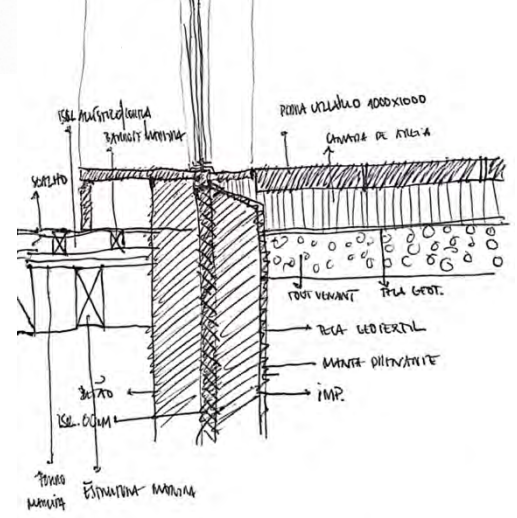 BARROTE MADEIRA
PEDRA VIDRAÇO 1000X1000
CAMADA DE AREIA
SOALHO
TOUT VENANT
TELA GEOT.
TELA GEOTEXTIL
MANTA DRENANTE
IMP.
BETÃO
ISOL. 60MM
FORRO
MADEIRA
ESTRUTURA MADEIRA